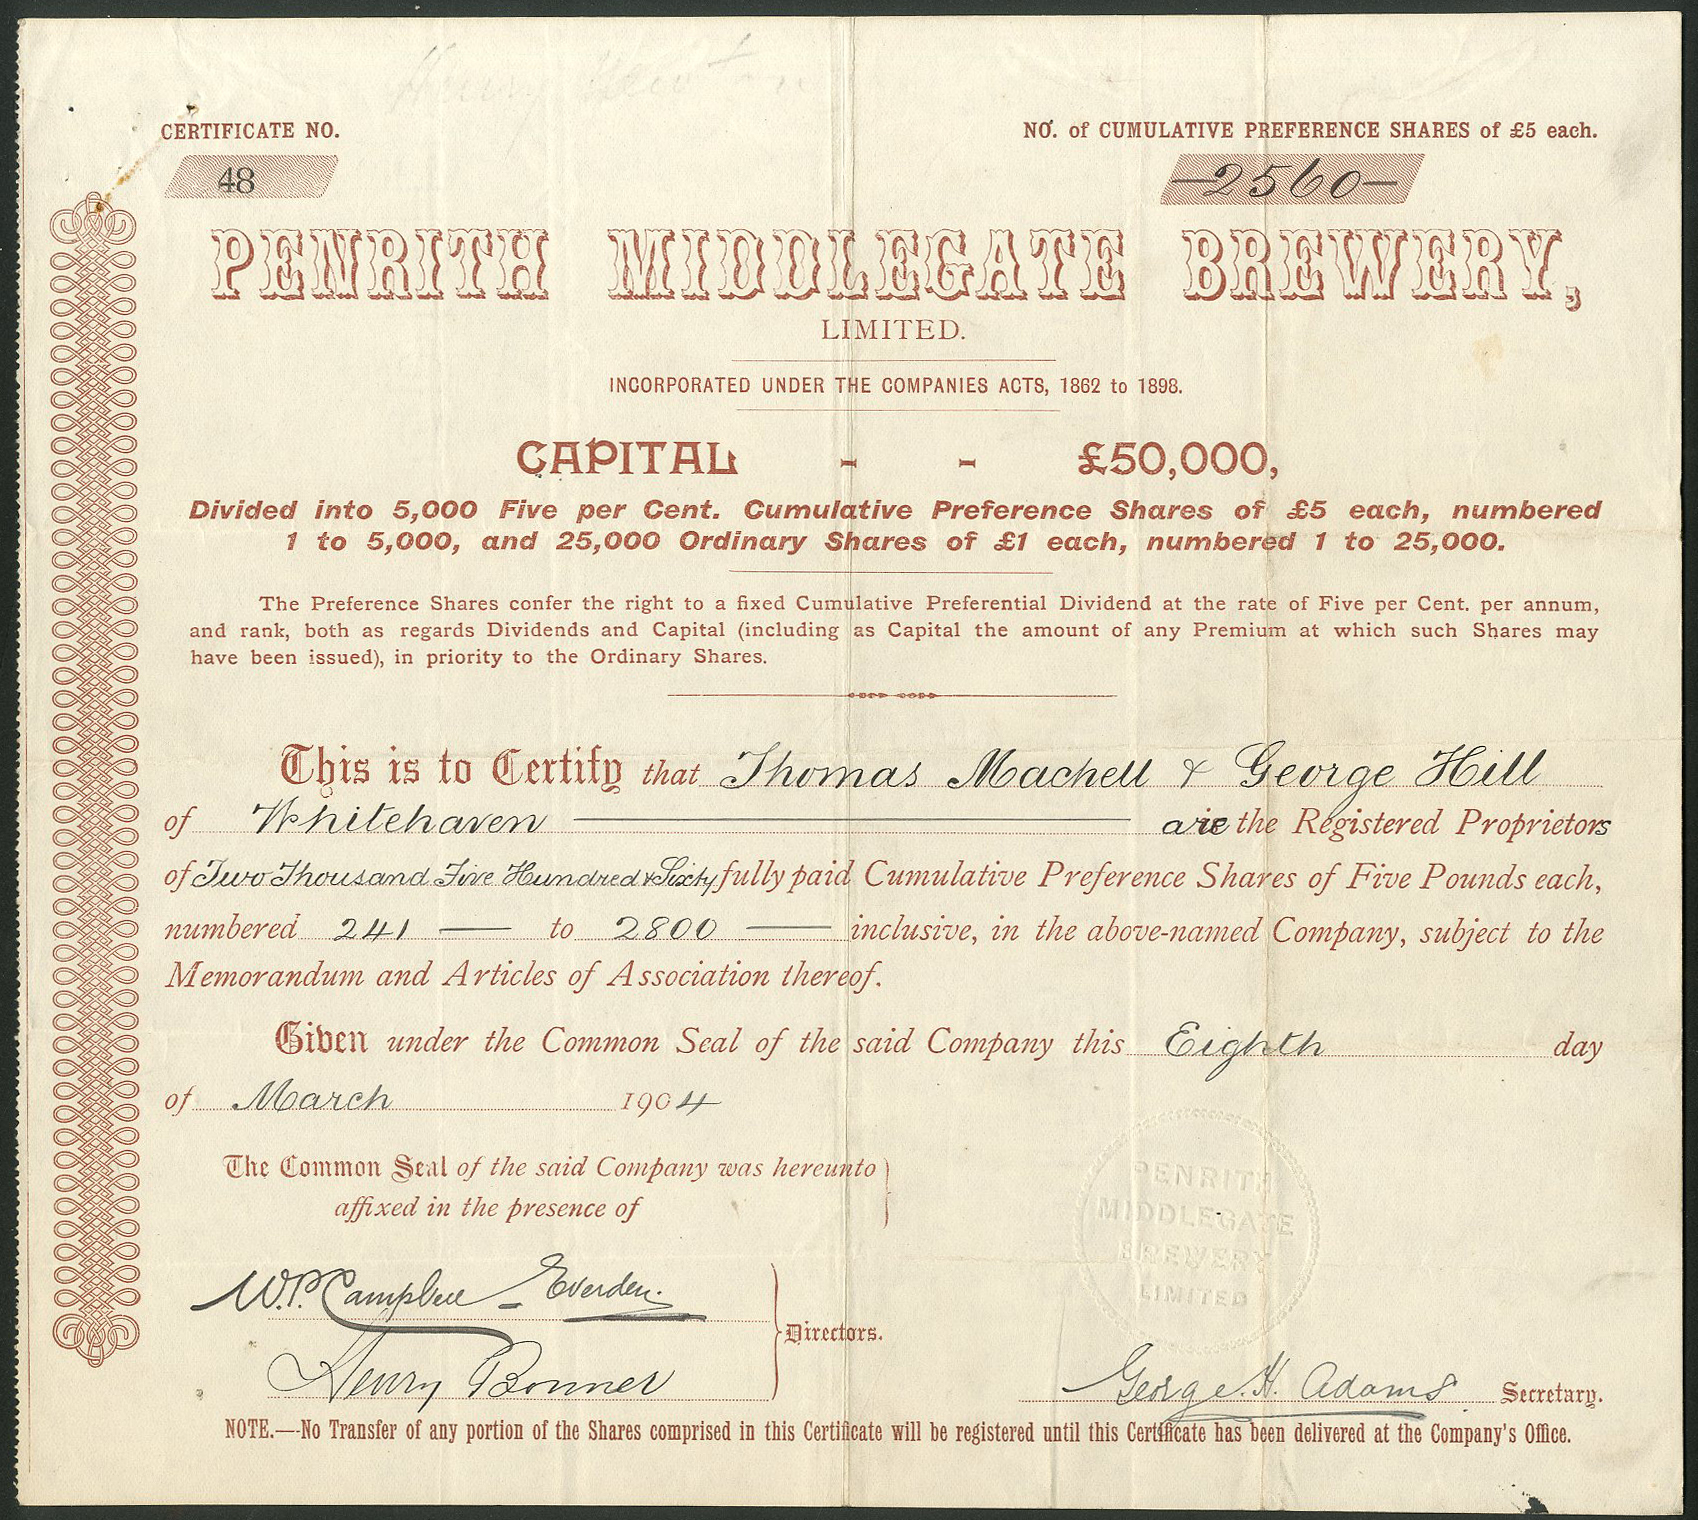 CERTIFICATE NO.
NO. of CUMULATIVE PREFERENCE SHARES of £5 each.
48
—2560—
PENRITH MIDDLEGATE BREWERY,
LIMITED.
INCORPORATED UNDER THE COMPANIES ACTS, 1862 to 1898.
CAPITAL - - £50,000,
Divided into 5,000 Five per Cent. Cumulative Preference Shares of £5 each, numbered
1 to 5,000, and 25,000 Ordinary Shares of £1 each, numbered 1 to 25,000.
The Preference Shares confer the right to a fixed Cumulative Preferential Dividend at the rate of Five per Cent. per annum,
and rank, both as regards Dividends and Capital (including as Capital the amount of any Premium at which such Shares may
have been issued), in priority to the Ordinary Shares.
This is to Certify that Thomas Machell & George Hill
of Whitehaven —— are the Registered Proprietors
of Two Thousand Five Hundred & Sixty fully paid Cumulative Preference Shares of Five Pounds each,
numbered 241 — to 2800 — inclusive, in the above-named Company, subject to the
Memorandum and Articles of Association thereof.
Given under the Common Seal of the said Company this Eighth day
of March 1904
The Common Seal of the said Company was hereunto
affixed in the presence of
PENRITH
MIDDLEGATE
BREWERY
LIMITED
W.P. Campbell - Everden.
Directors.
Henry Bonner
George. H. Adams Secretary.
NOTE.—No Transfer of any portion of the Shares comprised in this Certificate will be registered until this Certificate has been delivered at the Company's Office.